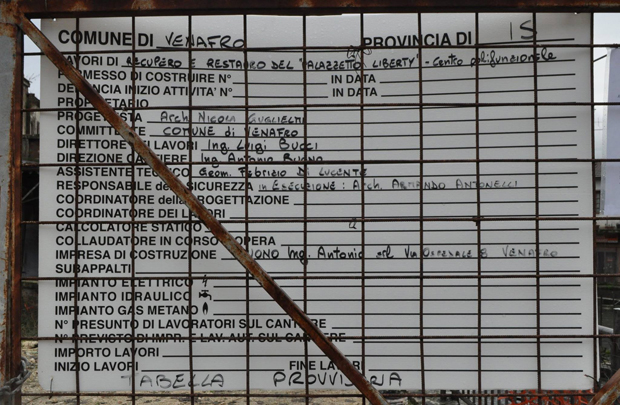 COMUNE DI VENAFRO PROVINCIA DI IS
LAVORI DI RECUPERO E RESTAURO DEL "PALAZZETTO LIBERTY" - Centro polifunzionale
PERMESSO DI COSTRUIRE N° IN DATA
DENUNCIA INIZIO ATTIVITA' N° IN DATA
PROPRIETARIO
PROGETTISTA Arch. Nicola GUGLIELMI
COMMITTENTE COMUNE di VENAFRO
DIRETTORE DEI LAVORI Ing. Luigi BUCCI
DIREZIONE CANTIERE Ing. Antonio BUONO
ASSISTENTE TECNICO Geom. Fabrizio DI LUCENTE
RESPONSABILE della SICUREZZA in ESECUZIONE: Arch. ARMANDO ANTONELLI
COORDINATORE della PROGETTAZIONE
COORDINATORE DEI LAVORI
CALCOLATORE STATICO
COLLAUDATORE IN CORSO D'OPERA
IMPRESA DI COSTRUZIONE BUONO Ing. Antonio srl Via 8 VENAFRO
SUBAPPALTI
IMPIANTO ELETTRICO
IMPIANTO IDRAULICO
IMPIANTO GAS METANO
N° PRESUNTO DI LAVORATORI SUL CANTIERE
N° PREVISTO DI IMPR. E LAV. AUT. SUL CANTIERE
IMPORTO LAVORI
INIZIO LAVORI FINE LAVORI
TABELLA PROVVISORIA